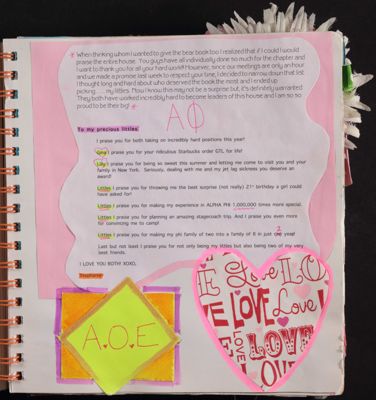 * When thinking whom I wanted to give the bear book too I realized that if I could I would
praise the entire house. You guys have all individually done so much for the chapter and
I want to thank you for all your hard work!! However, since our meetings are only an hour
and we made a promise last week to respect your time, I decided to narrow down that list.
I thought long and hard about who deserved the book the most and I ended up
picking....... my littles. Now I know this may not be a surprise but, it's definitely warranted.
They both have worked incredibly hard to become leaders of this house and I am so so
proud to be their big! *
AΦ
To my precious littles:
I praise you for both taking on incredibly hard positions this year!
I praise you for your ridiculous Starbucks order GTL for life!
Lilly I praise you for being so sweet this summer and letting me come to visit you and your
family in New York. Seriously, dealing with me and my jet lag sickness you deserve an
award!
Littles I praise you for throwing me the best surprise (not really) 21st birthday a girl could
have asked for!
Littles I praise you for making my experience in ALPHA PHI 1,000,000 times more special.
Littles I praise you for planning an amazing stagecoach trip. And I praise you even more
for convincing me to camp!
Littles I praise you for making my phi family of two into a family of 8 in just one year!
2
Last but not least I praise you for not only being my littles but also being two of my very
best friends.
I LOVE YOU BOTH! XOXO,
Stephanie
A.O.E
LOVE
Love
LOVE
LOVE
Love
LOVE
LOVE
LOVE